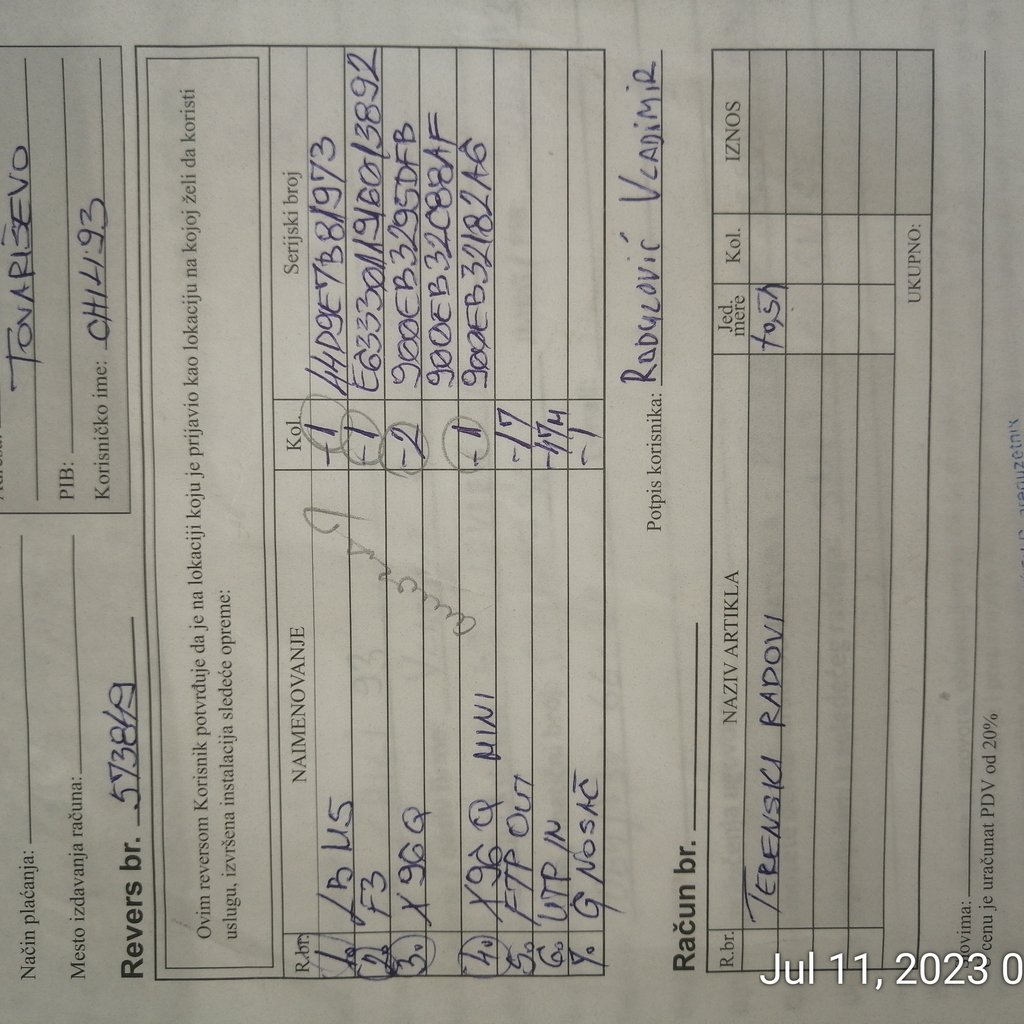 TOVARIŠEVO
PIB:
Korisničko ime: CH4493
Način plaćanja:
Mesto izdavanja računa:
Revers br. 573849
Ovim reversom Korisnik potvrđuje da je na lokaciji koju je prijavio kao lokaciju na kojoj želi da koristi
uslugu, izvršena instalacija sledeće opreme:
R.br. NAIMENOVANJE Kol. Serijski broj
1. LB M5 -1 44D9E7B81973
2. F3 -1
3. X96Q -2 900EB3295DFB
900EB32C88AF
4. X96Q MINI -1 900EB32182A6
5. FTP OUT -17
6. UTP IN -17M
7. G NOSAČ -1
Potpis korisnika: RADULOVIĆ VLADIMIR
Račun br.
R.br. NAZIV ARTIKLA Jed. mere Kol. IZNOS
TERENSKI RADOVI
UKUPNO:
U cenu je uračunat PDV od 20%
Jul 11, 2023 0